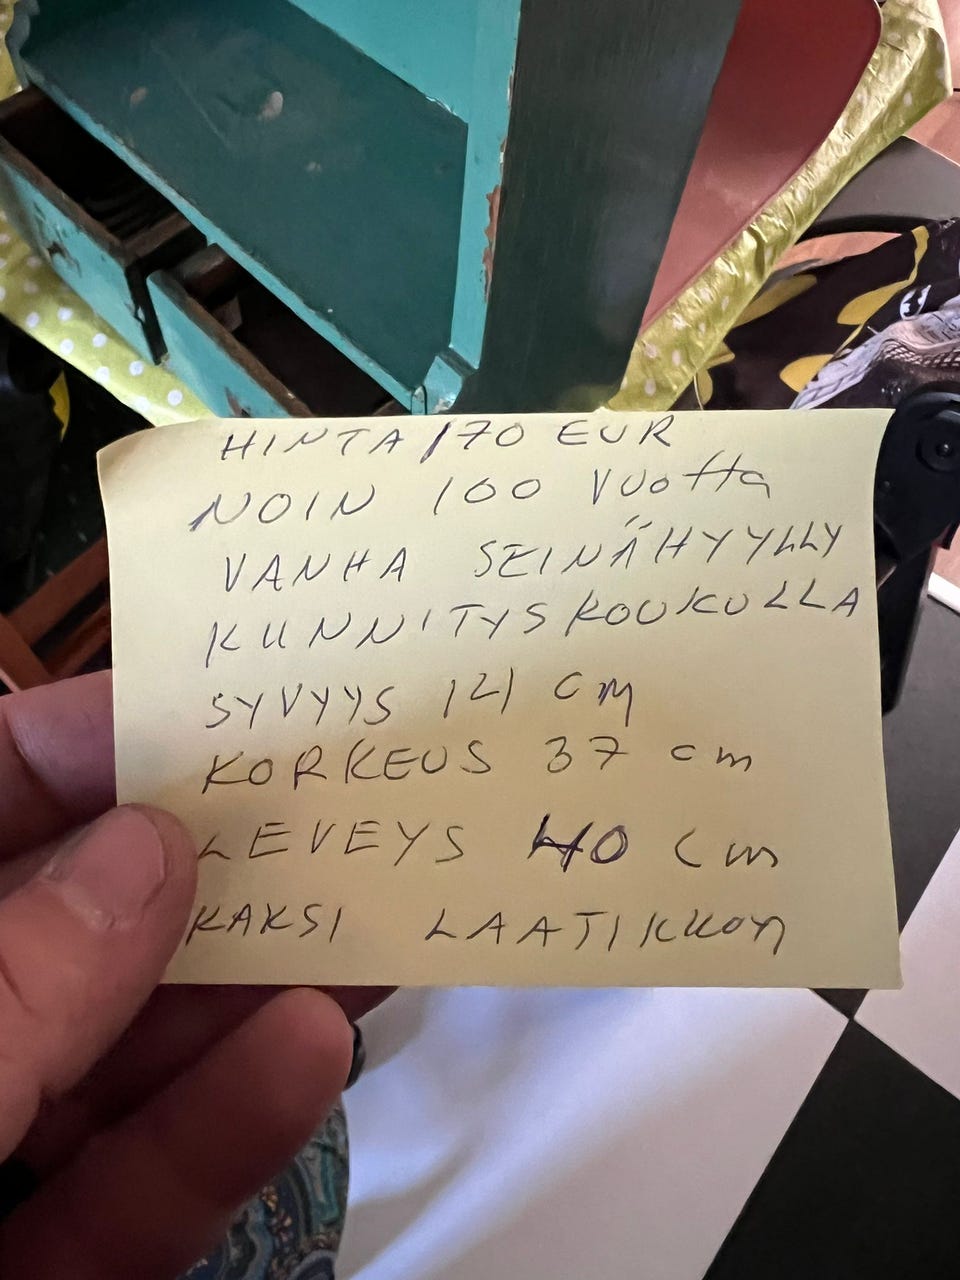 HINTA 170 EUR
NOIN 100 Vuotta
VANHA SEINÄHYYLLY
KUNNITYSKOUKULLA
SYVYYS 14 cm
KORKEUS 37 cm
LEVEYS 40 cm
KAKSI LAATIKKOA